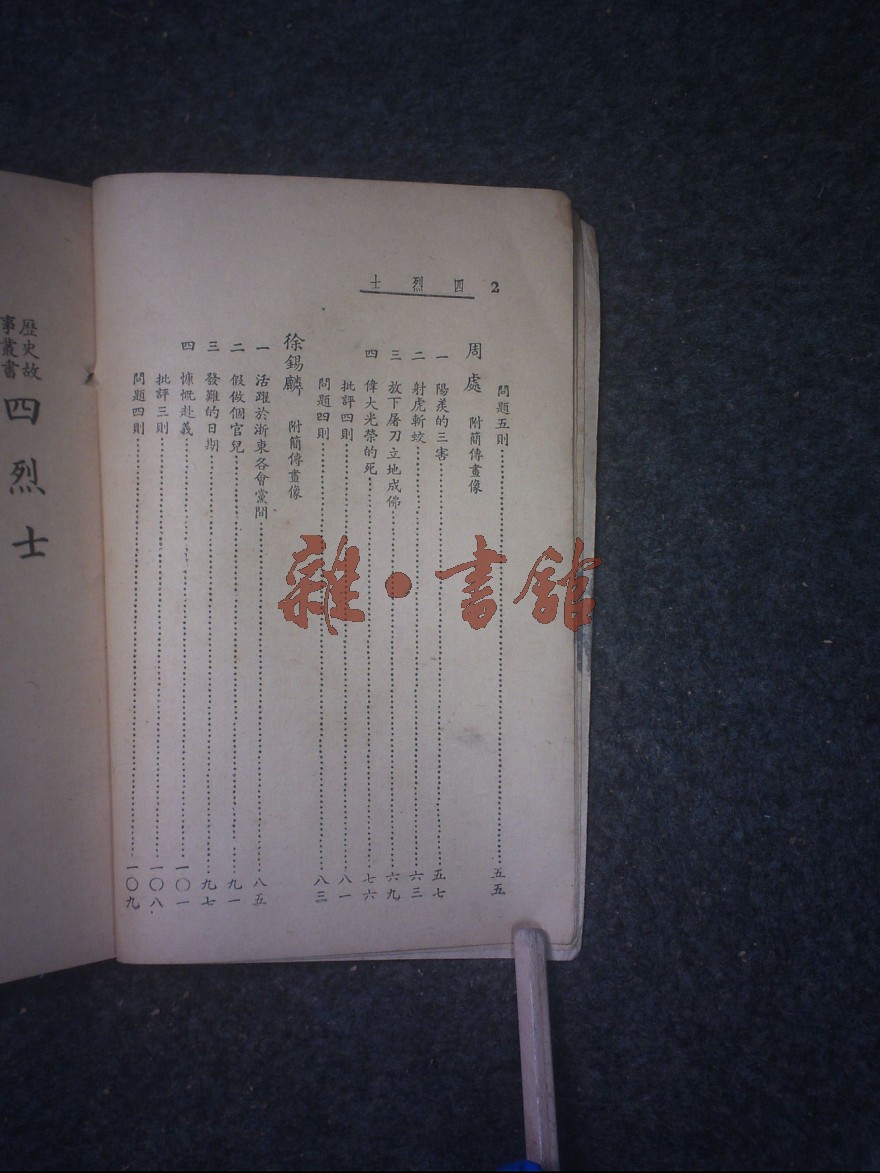 2 四烈士
問題五則……五五
周處 附簡傳畫像
一 陽羨的三害……五七
二 射虎斬蛟……六三
三 放下屠刀立地成佛……六九
四 偉大光榮的死……七六
批評四則……八一
問題四則……八三
徐錫麟 附簡傳畫像
一 活躍於浙東各會黨間……八五
二 假做個官兒……九一
三 發難的日期……九七
四 慷慨赴義……一〇一
批評三則……一〇八
問題四則……一〇九
歷史故
事叢書
四烈士
雜·書館